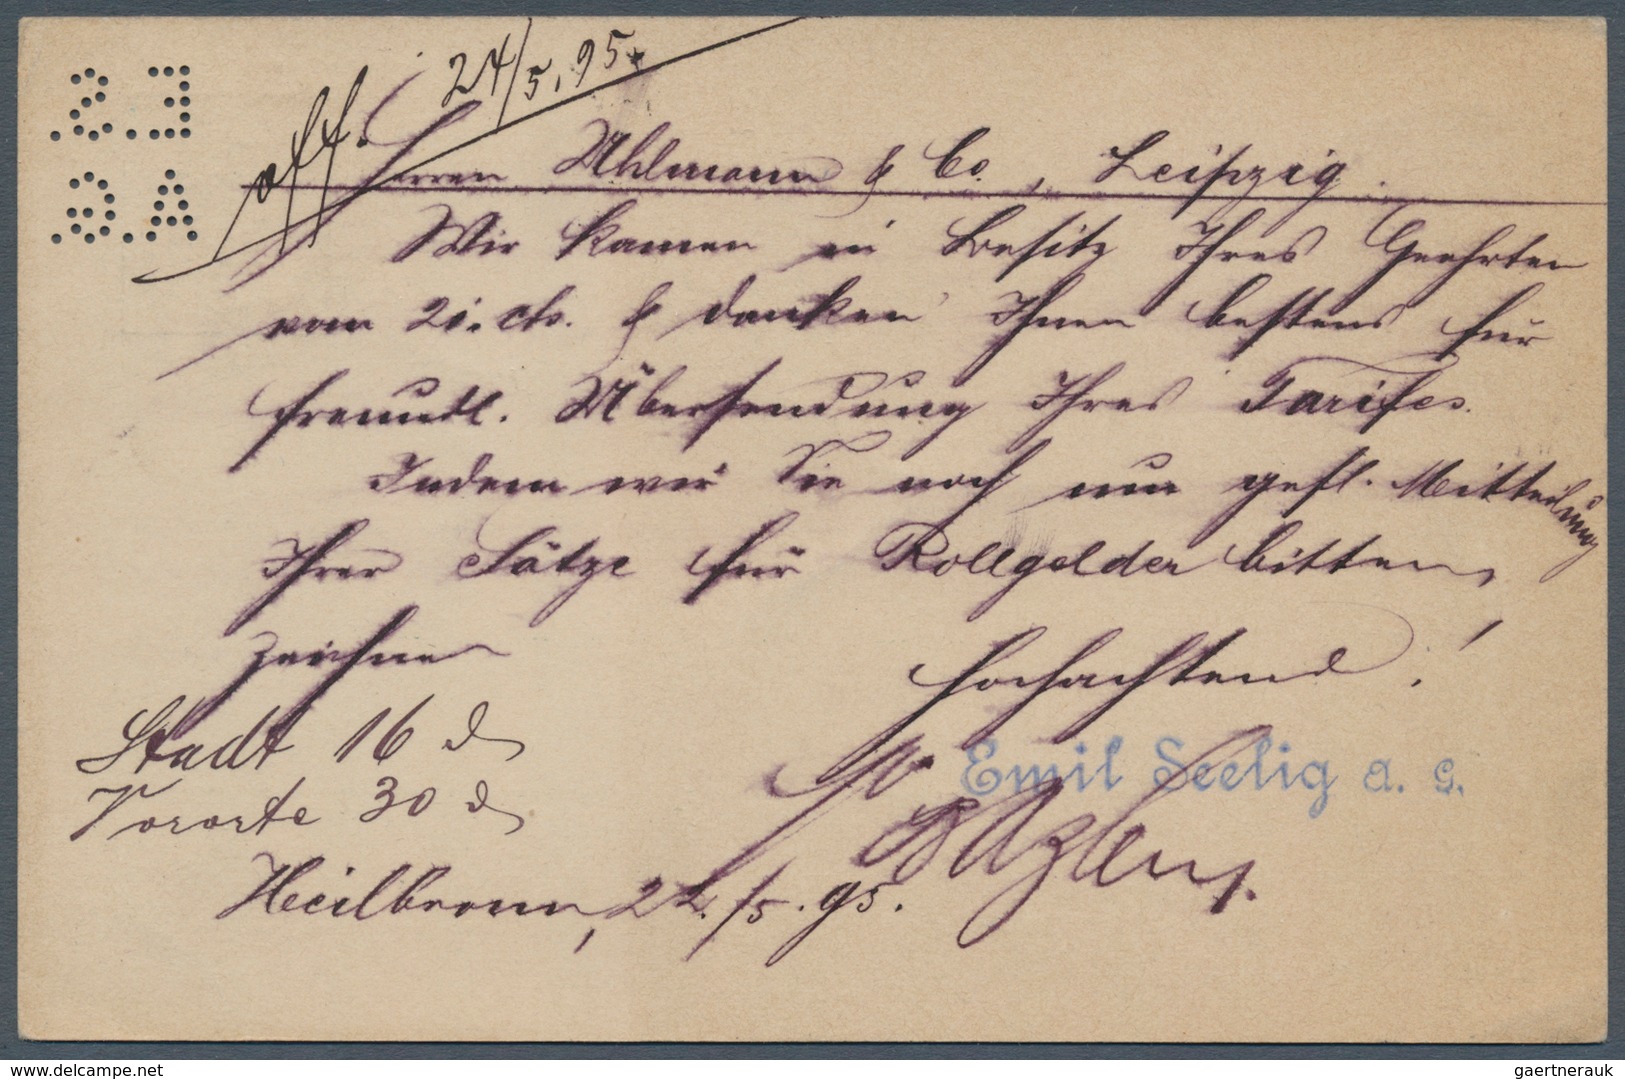 24/5.95.
Herren Uhlmann & Co., Leipzig.
Wir kamen in Besitz Ihres Geehrten
vom 21. cts. & danken Ihnen bestens für
freundl. Übersendung Ihres Tarifes.
Indem wir Sie noch um gefl. Mitteilung
Ihrer Sätze für Rollgelder bitten,
zeichnen
Hochachtend!
Stadt 16 d
Vororte 30 d
Emil Seelig a. G.
Heilbronn, 22./5.95.
delcampe.net
gaertnerauk